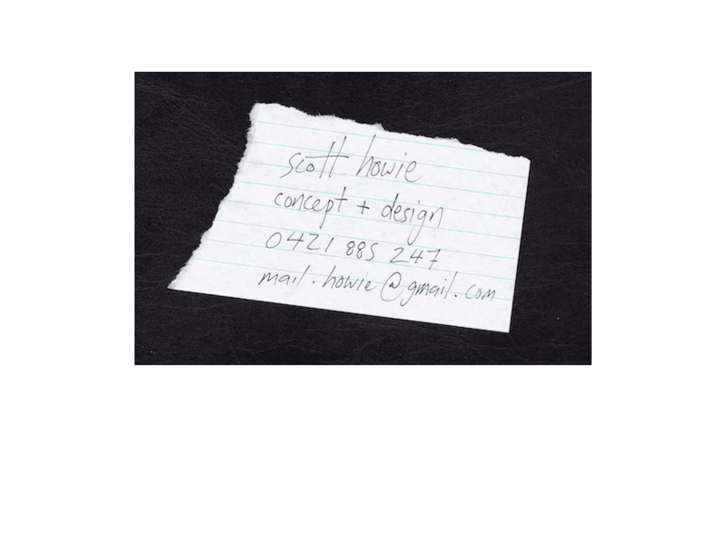 scott howie
concept + design
0421 885 247
mail.howie@gmail.com